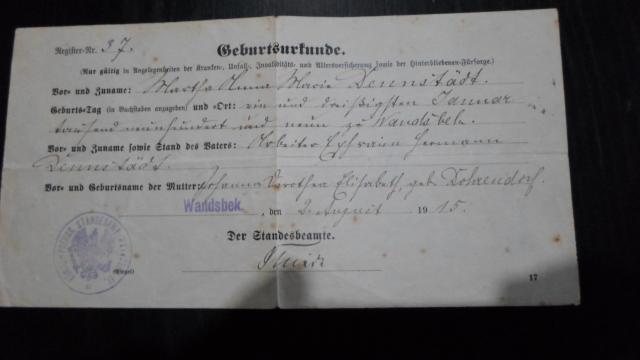 Register-Nr. 37.
Geburtsurkunde.
(Nur gültig in Angelegenheiten der Kranken-, Unfall-, Invaliditäts- und Altersversicherung sowie der Hinterbliebenen-Fürsorge.)
Vor- und Zuname: Martha Anna Marie Dennstädt.
Geburts-Tag (in Buchstaben anzugeben) und -Ort: ein und dreißigsten Januar
tausend neunhundert und neun zu Wandsbek.
Vor- und Zuname sowie Stand des Vaters: Arbeiter Ephraim Hermann
Dennstädt.
Vor- und Geburtsname der Mutter: Johanna Dorothea Elisabeth, geb. Dohrendorf.
Wandsbek, den 2. August 1915.
Der Standesbeamte.
(Siegel)
17